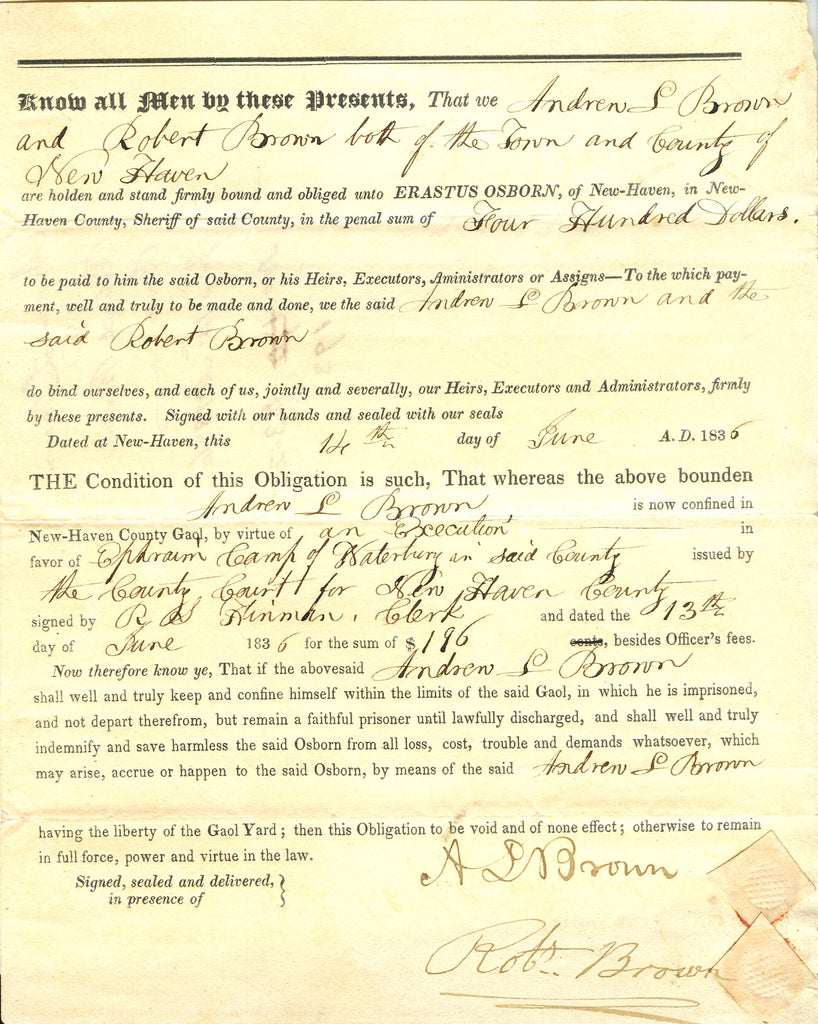 Know all Men by these Presents, That we Andrew L Brown
and Robert Brown both of the Town and County of
New Haven
are holden and stand firmly bound and obliged unto ERASTUS OSBORN, of New-Haven, in New-
Haven County, Sheriff of said County, in the penal sum of Four Hundred Dollars.
to be paid to him the said Osborn, or his Heirs, Executors, Aministrators or Assigns—To the which pay-
ment, well and truly to be made and done, we the said Andrew L Brown and the
said Robert Brown
do bind ourselves, and each of us, jointly and severally, our Heirs, Executors and Administrators, firmly
by these presents. Signed with our hands and sealed with our seals
Dated at New-Haven, this 14th day of June A. D. 1836
THE Condition of this Obligation is such, That whereas the above bounden
Andrew L Brown is now confined in
New-Haven County Gaol, by virtue of an Execution in
favor of Ephraim Camp of Waterbury in said County issued by
the County Court for New Haven County
signed by R S Hinman, Clerk and dated the 13th
day of June 1836 for the sum of $196 cents, besides Officer's fees.
Now therefore know ye, That if the abovesaid Andrew L Brown
shall well and truly keep and confine himself within the limits of the said Gaol, in which he is imprisoned,
and not depart therefrom, but remain a faithful prisoner until lawfully discharged, and shall well and truly
indemnify and save harmless the said Osborn from all loss, cost, trouble and demands whatsoever, which
may arise, accrue or happen to the said Osborn, by means of the said Andrew L Brown
having the liberty of the Gaol Yard; then this Obligation to be void and of none effect; otherwise to remain
in full force, power and virtue in the law.
A L Brown
Signed, sealed and delivered, }
in presence of
Robt. Brown